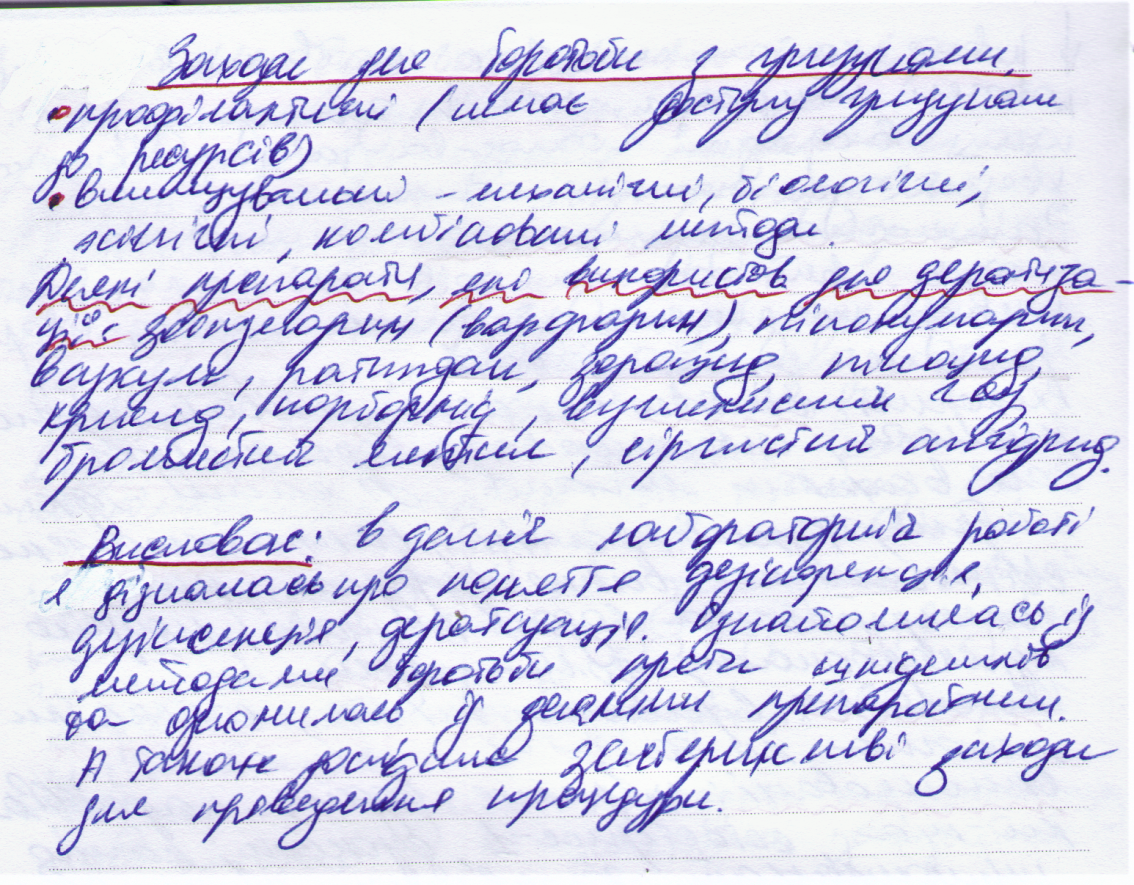 Заходи для боротьби з гризунами.
• профілактичні (немає доступу гризунам
до ресурсів)
• винищувальні - механічні, біологічні,
хімічні, комбіновані методи.
Деякі препарати, які використов для дератиза-
ції: зоокумарин (варфарин), пінокумарин,
вакуум, ратиндан, зерацид,
крисид, вуглекислий газ
бромистий метил, сірчистий ангідрид.
Висновок: в даній лабораторній роботі
я дізналась про поняття дезінфекція,
дезінсекція, дератизація. Ознайомилась із
методами боротьби проти шкідників
та ознайомилась із деякими препаратами.
А також дослідила заходи
для проведення процедури.